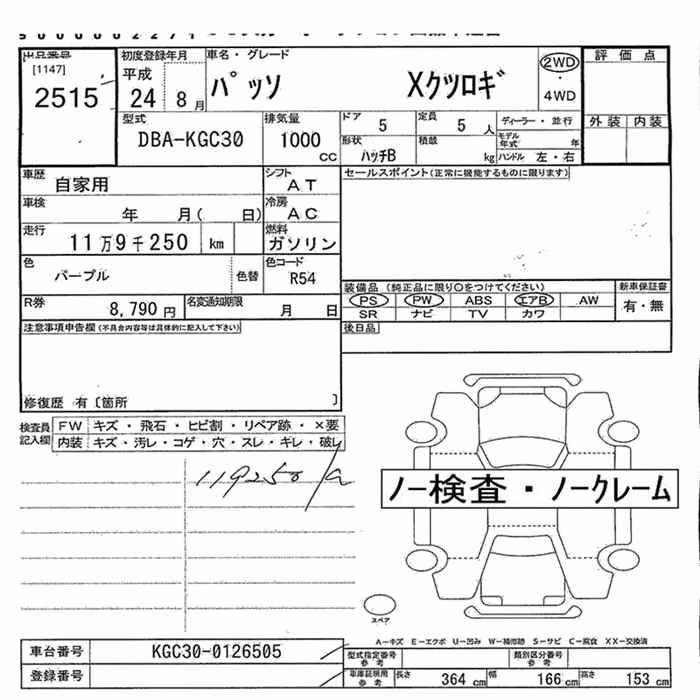 出品番号
[1147]
2515
初度登録年月
平成
24 8 月
車名・グレード
パッソ Xクツロギ
2WD
・
4WD
評価点
外装 内装
型式
DBA-KGC30
排気量
1000
cc
ドア 5
定員 5 人
ディーラー・並行
モデル年式 年
形状 ハッチB
積載 kg
ハンドル 左・右
車歴
自家用
シフト
AT
セールスポイント(正常に機能するものに限ります)
車検
年 月( 日)
冷房
AC
走行
11万9千250 km
燃料
ガソリン
色
パープル
色替
色コード
R54
装備品 (純正品に限り○をつけてください)
新車保証書
PS PW ABS エアB AW
SR ナビ TV カワ
有・無
R券
8,790 円
名変通知期限
月 日
後日品
注意事項申告欄(不具合内容等は具体的に記入して下さい)
修復歴 有〔箇所 〕
検査員記入欄
FW キズ・飛石・ヒビ割・リペア跡・×要
内装 キズ・汚レ・コゲ・穴・スレ・キレ・破レ
119250
ノー検査・ノークレーム
スペア
A―キズ E―エクボ U―凹み W―補修跡 S―サビ C―腐食 XX―交換済
車台番号
KGC30-0126505
登録番号
型式指定番号
参考
類別区分番号
参考
車庫証明用
参考
長さ 364 cm
幅 166 cm
高さ 153 cm